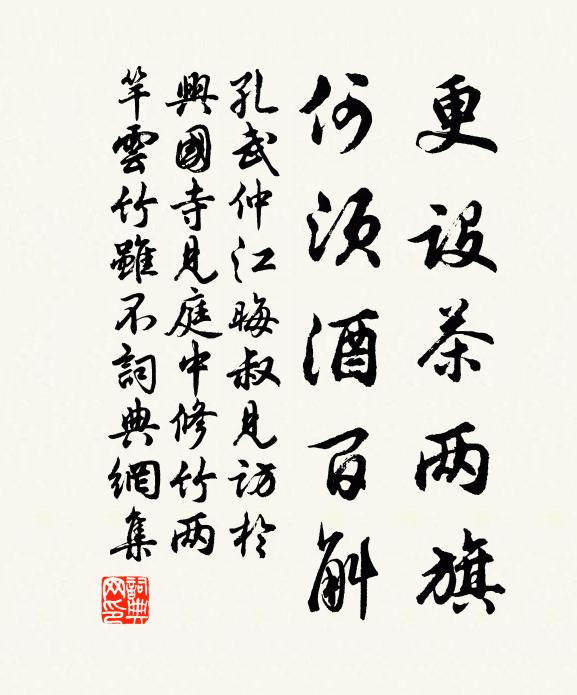 更設茶两旗
何須酒百斛
孔武仲江晦叔見訪於
興國寺見庭中修竹两
竿雲竹雖不詞典網集
詞典网印